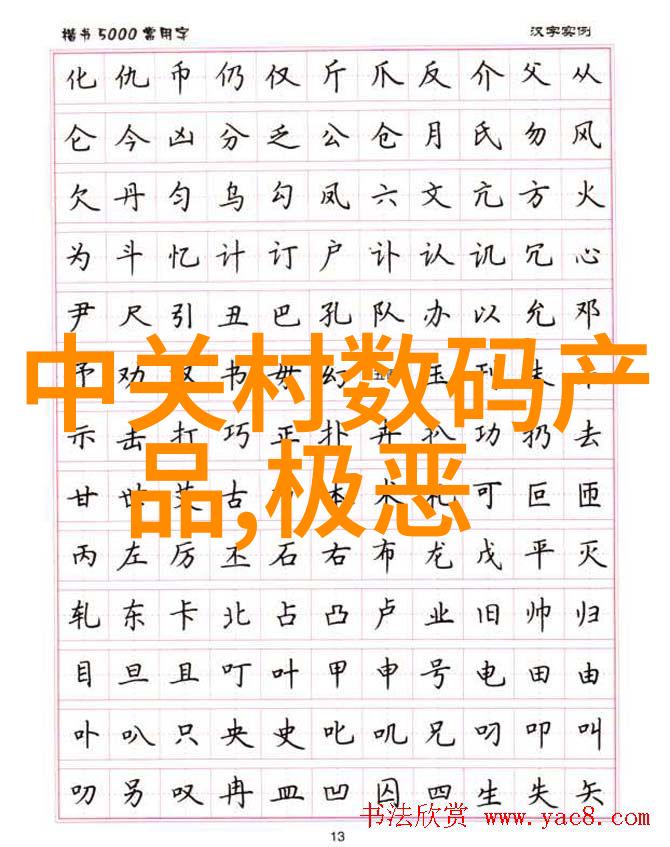 楷书5000常用字 汉字实例
化仇币仍仅斤爪反介父从
仑今凶分乏公仓月氏勿风
欠丹匀乌勾凤六文亢方火
为斗忆计订户讣认讥冗心
尹尺引丑巴孔队办以允邓
予劝双书毋幻
中关村数码产
示击打巧正扑卉扒功扔去
甘世古本术札可叵匝
品,极恶
丙左厉丕石右布龙戊平灭
轧东卡北占凸卢业旧帅归
目旦且叮叶甲申号电田由
卟叭只央史叱叽兄叼叩叫
叻另叹冉皿凹囚四生失矢
书法欣赏 www.yac8.com
13